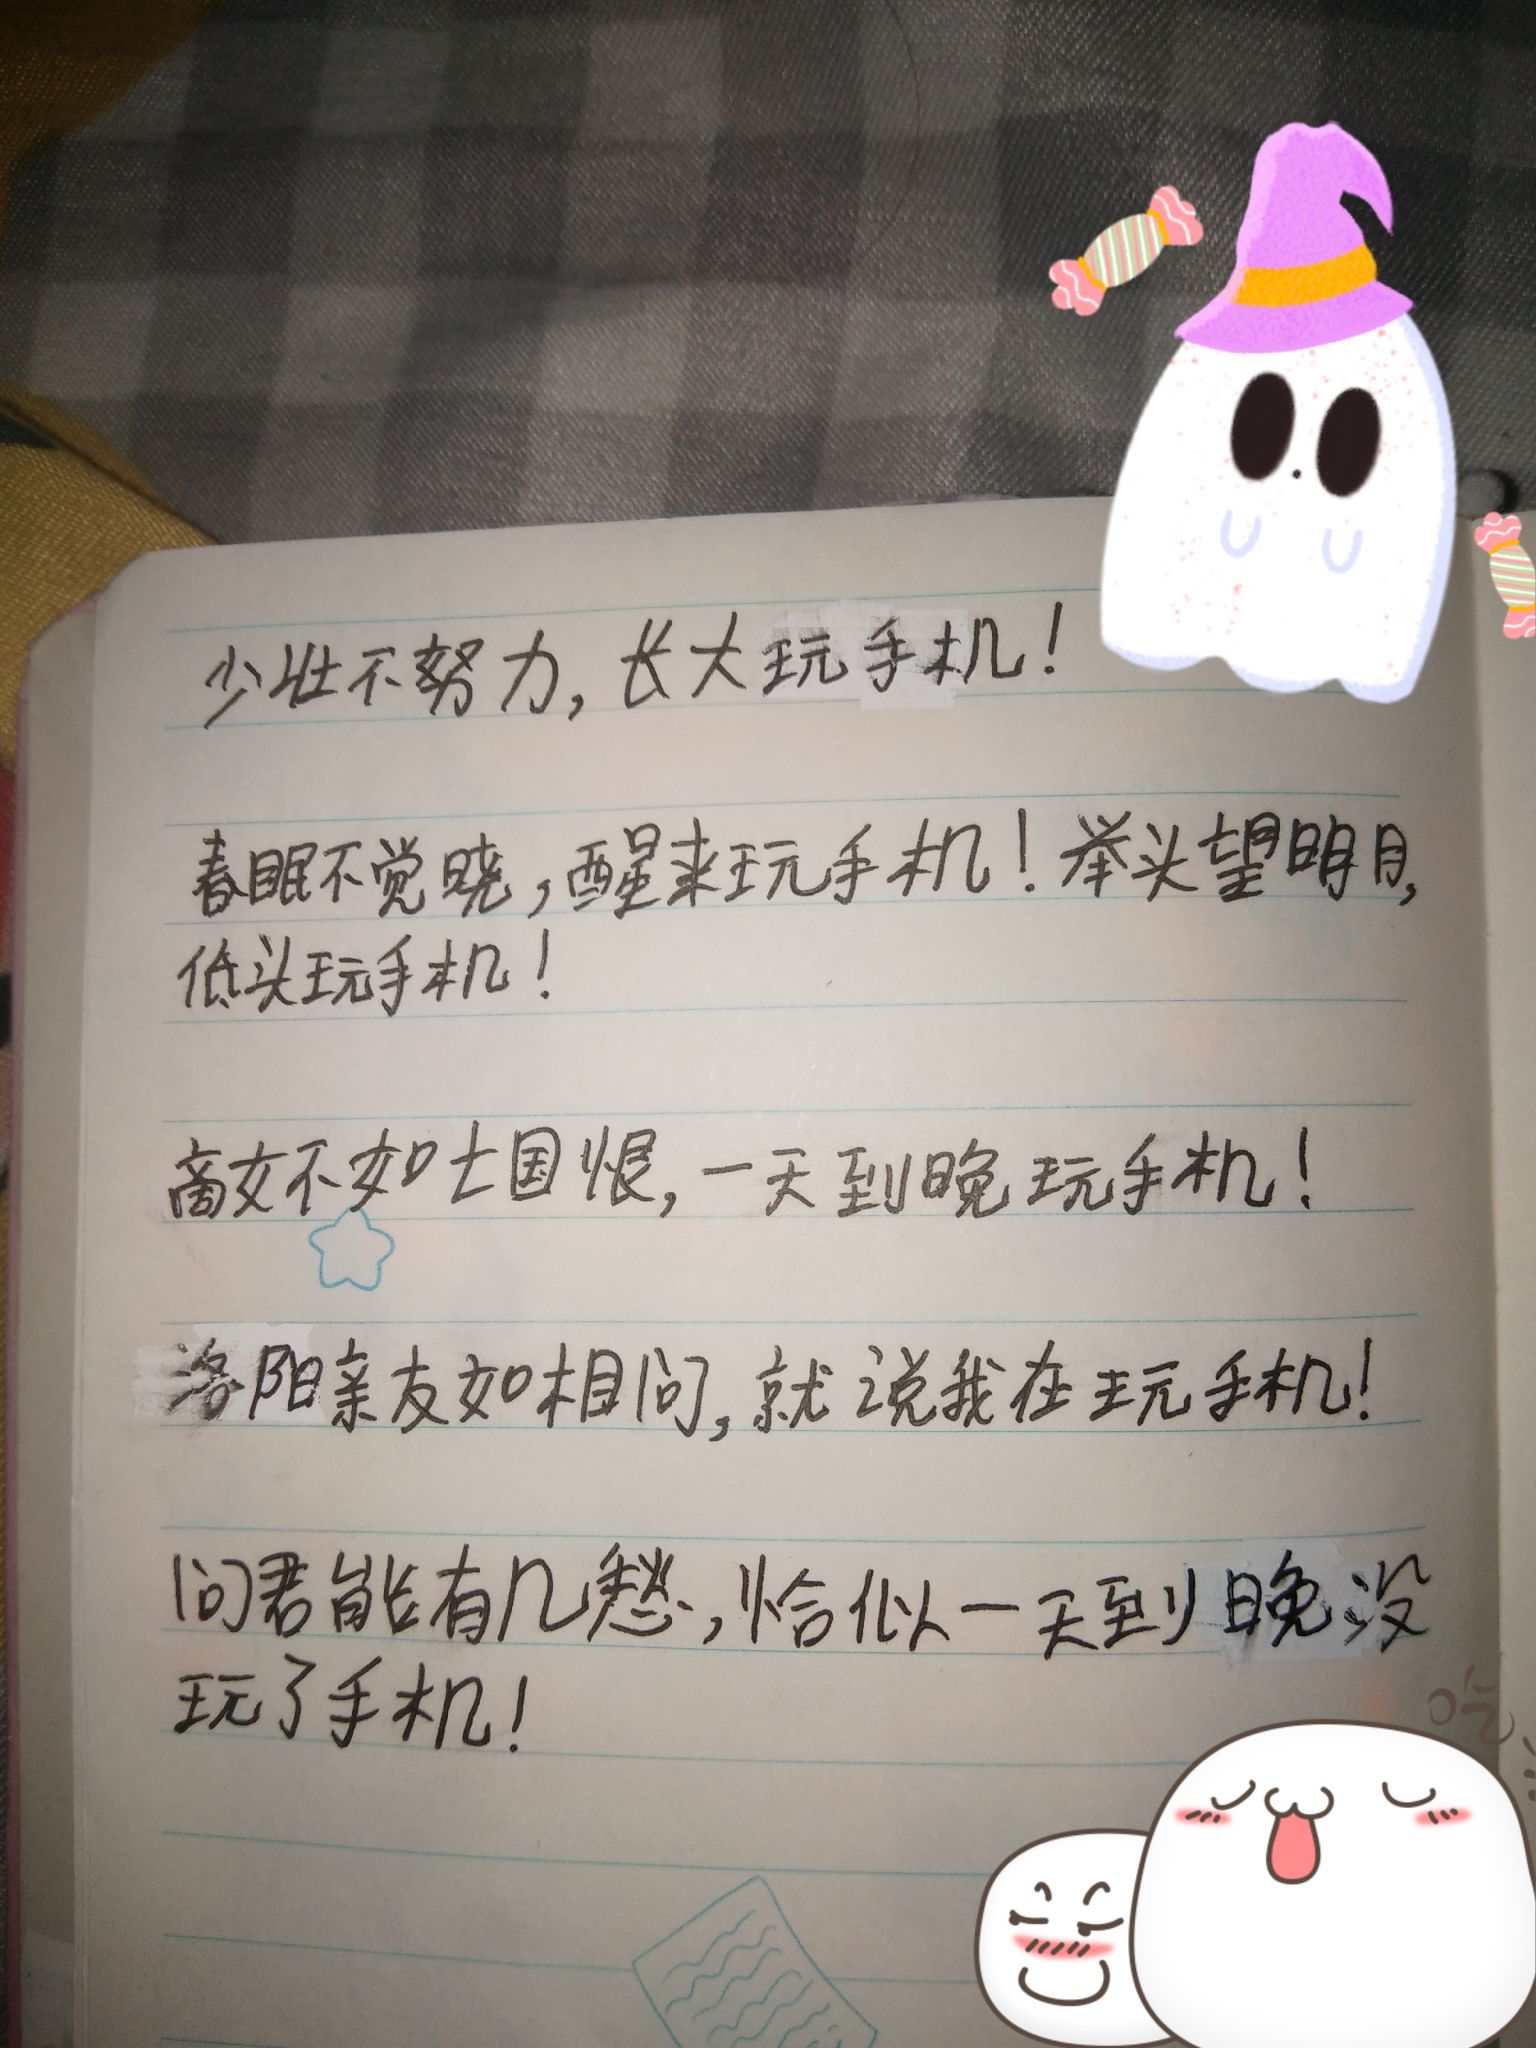 少壮不努力，长大玩手机！
春眠不觉晓，醒来玩手机！举头望明月，
低头玩手机！
商女不如亡国恨，一天到晚玩手机！
洛阳亲友如相问，就说我在玩手机！
问君能有几愁，恰似一天到晚没
玩了手机！